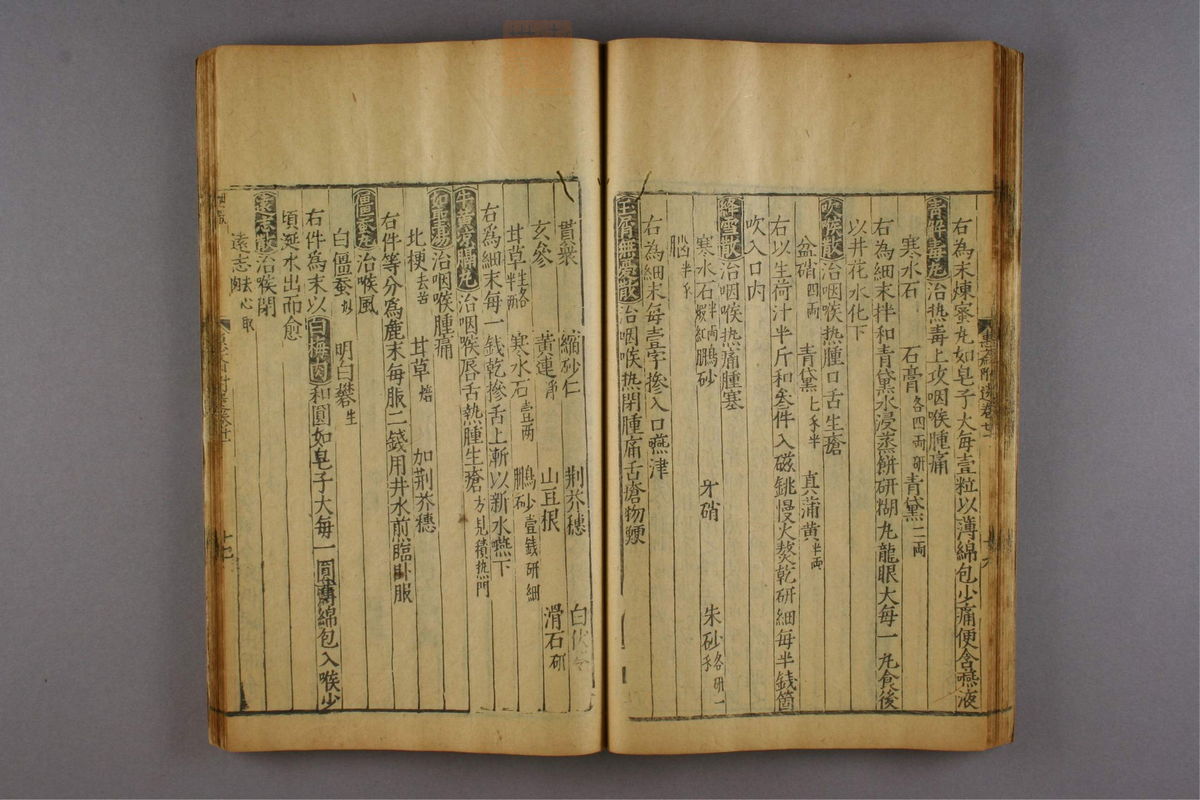 右為末煉蜜丸如皂子大每壹粒以薄綿包少痛便含燕液
青解毒丸治热毒上攻咽喉腫痛
寒水石 石膏各四両研 青黛二両
右為細末拌和青黛水浸蒸餅研糊丸龍眼大每一丸食後
以井花水化下
吹喉散治咽喉热腫口舌生瘡
盆硝四両 青黛七錢半 真蒲黄半両
右以生荷汁半斤和矣件入磁銚慢火熬乾研細每半錢箇
吹入口内
絳雪散治咽喉热痛腫塞
寒水石半両煅紅 鵬砂 牙硝 朱砂各研一錢
脳半錢
右為細末每壹字摻入口嚥津
玉屑無憂散治咽喉热閉腫痛舌瘡物鯁
貫衆 縮砂仁 荆芥穗 白伏令
玄參 黄連淨 山豆根 滑石研
甘草生各半両 寒水石壹両 鵬砂壹錢研細
右為細末每一錢乾摻舌上漸以新水嚥下
牛黄凉膈丸治咽喉唇舌熱腫生瘡方見積热門
如聖湯治咽喉腫痛
北梗去苦 甘草焙 加荆芥穗
右件等分為麄末每服二錢用井水煎臨卧服
僵蚕丸治喉風
白僵蚕炒 明白礬生
右件為末以白梅肉和圓如皂子大每一圓薄綿包入喉少
頃涎水出而愈
遠志散治喉閉
遠志去心取